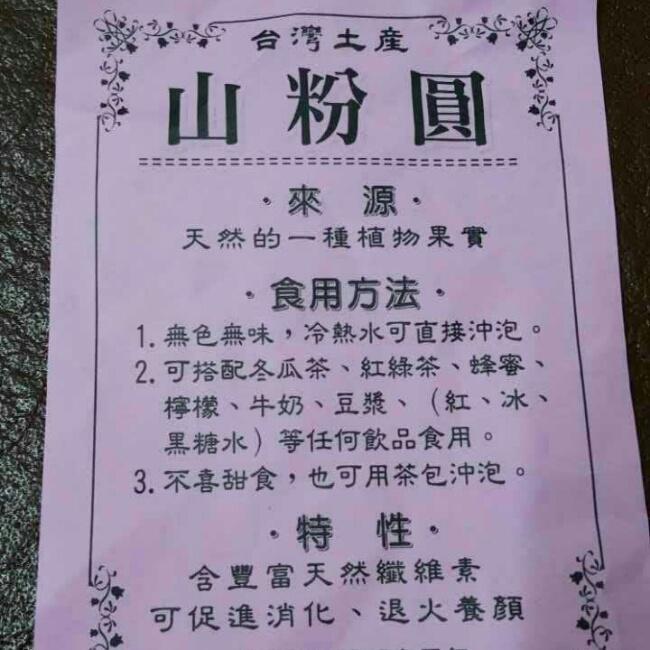 台灣土産
山粉圓
·來 源·
天然的一種植物果實
·食用方法·
1. 無色無味，冷熱水可直接沖泡。
2. 可搭配冬瓜茶、紅綠茶、蜂蜜、
檸檬、牛奶、豆漿、（紅、冰、
黑糖水）等任何飲品食用。
3. 不喜甜食，也可用茶包沖泡。
·特 性·
含豐富天然纖維素
可促進消化、退火養顏